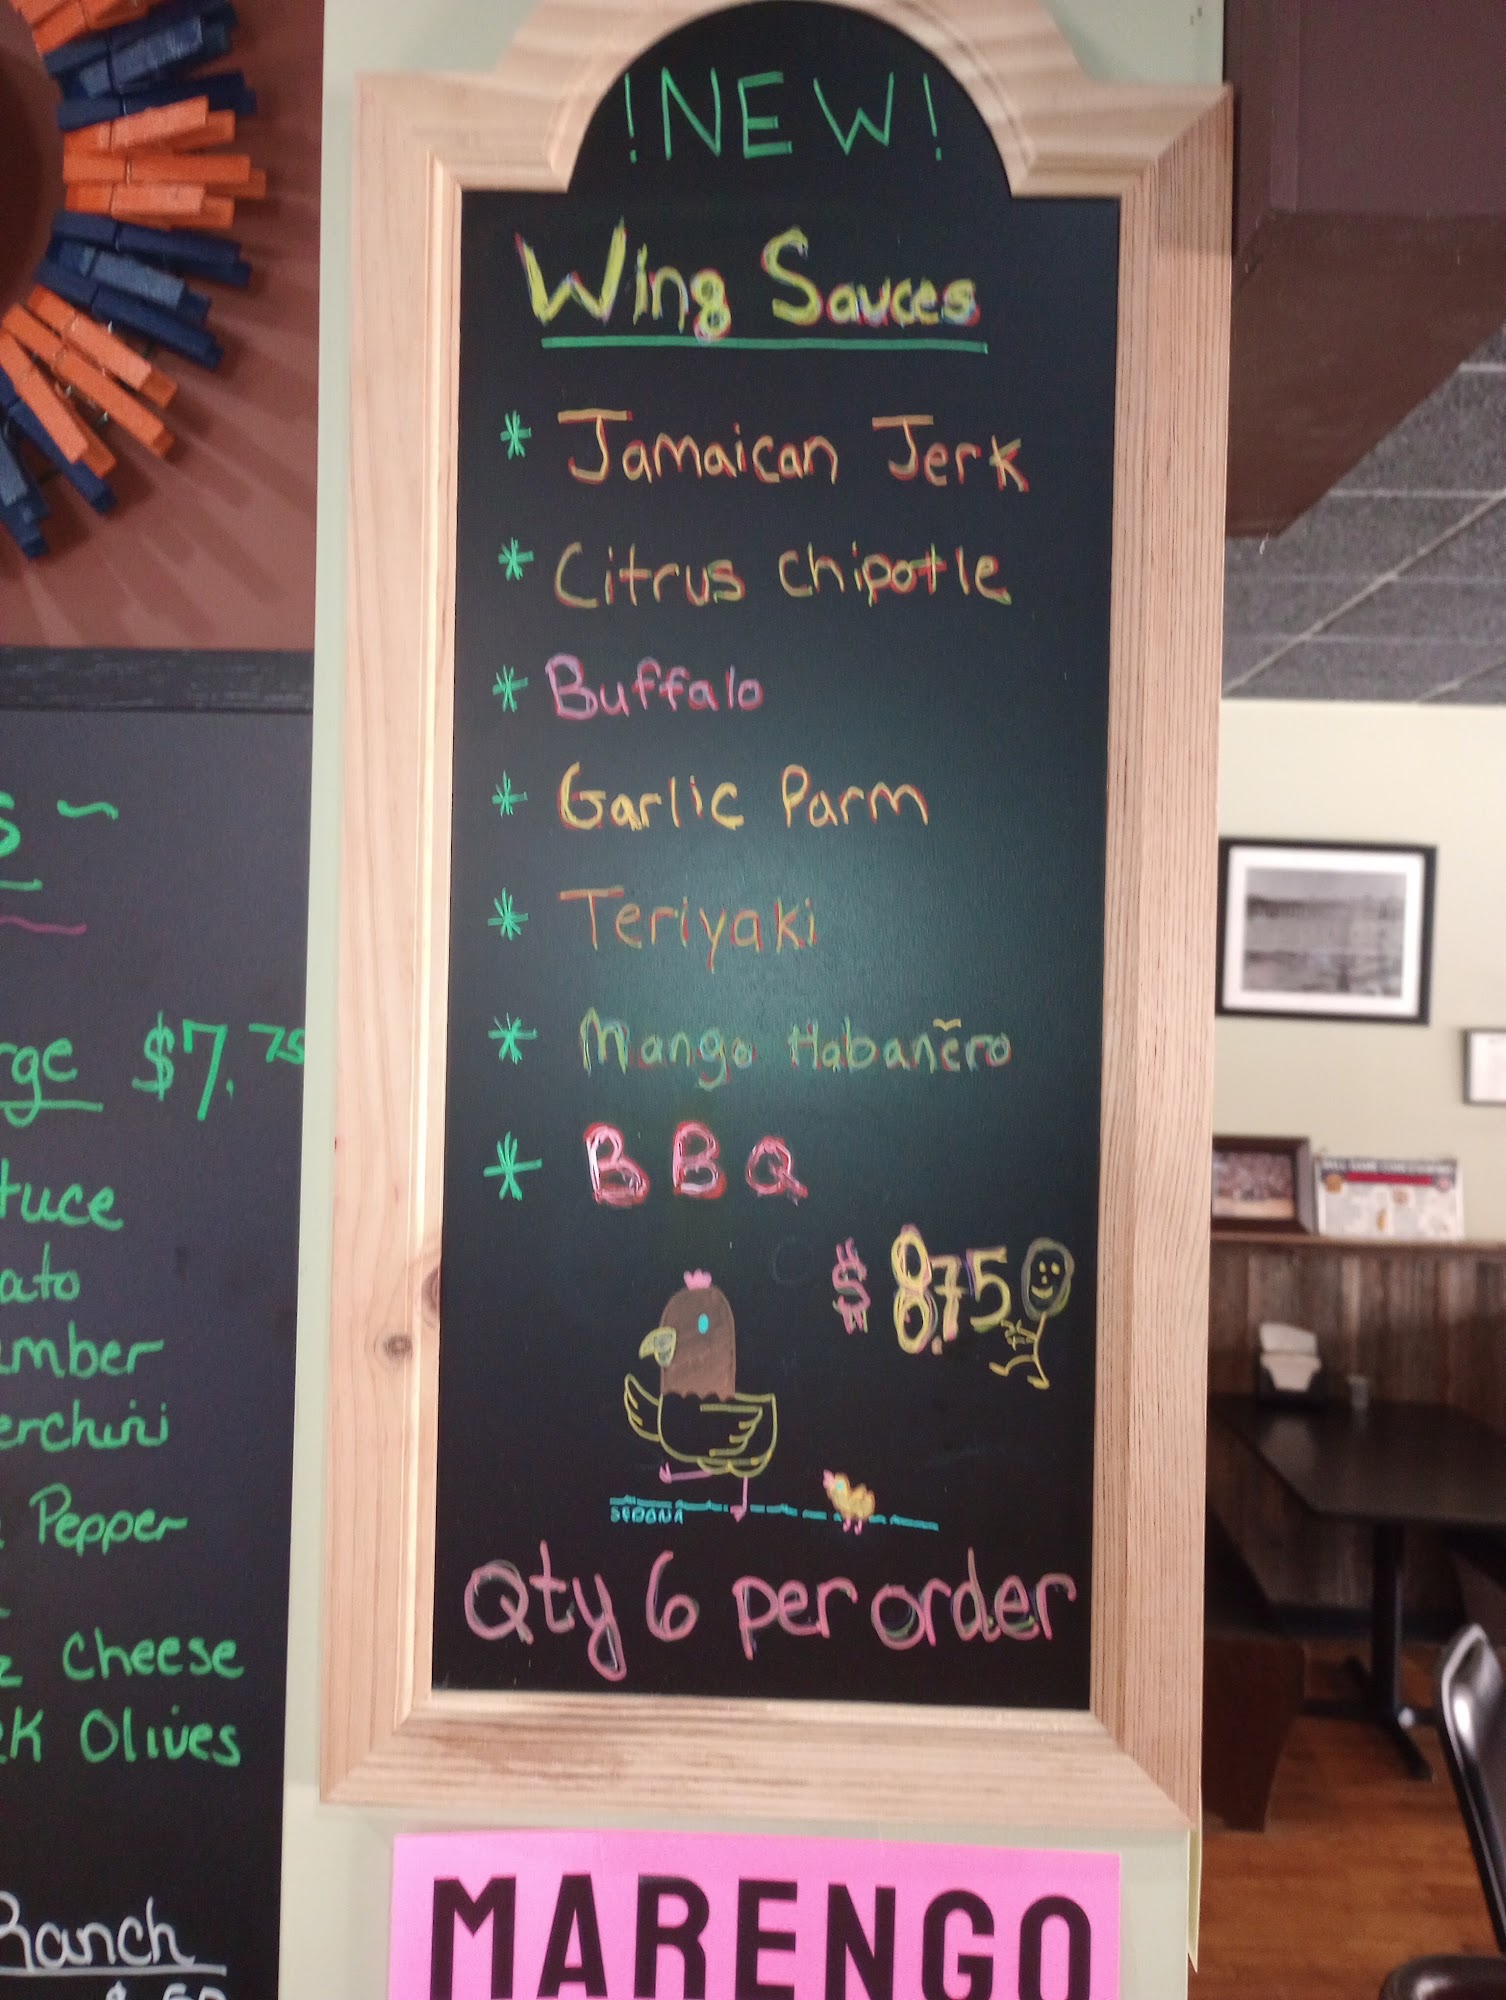 !NEW!
Wing Sauces
* Jamaican Jerk
* Citrus Chipotle
* Buffalo
* Garlic Parm
* Teriyaki
* Mango Habañero
* BBQ
$8.75
SEDONA
Qty 6 per order
MARENGO
$7.75
Pepper
Cheese
Olives
Ranch